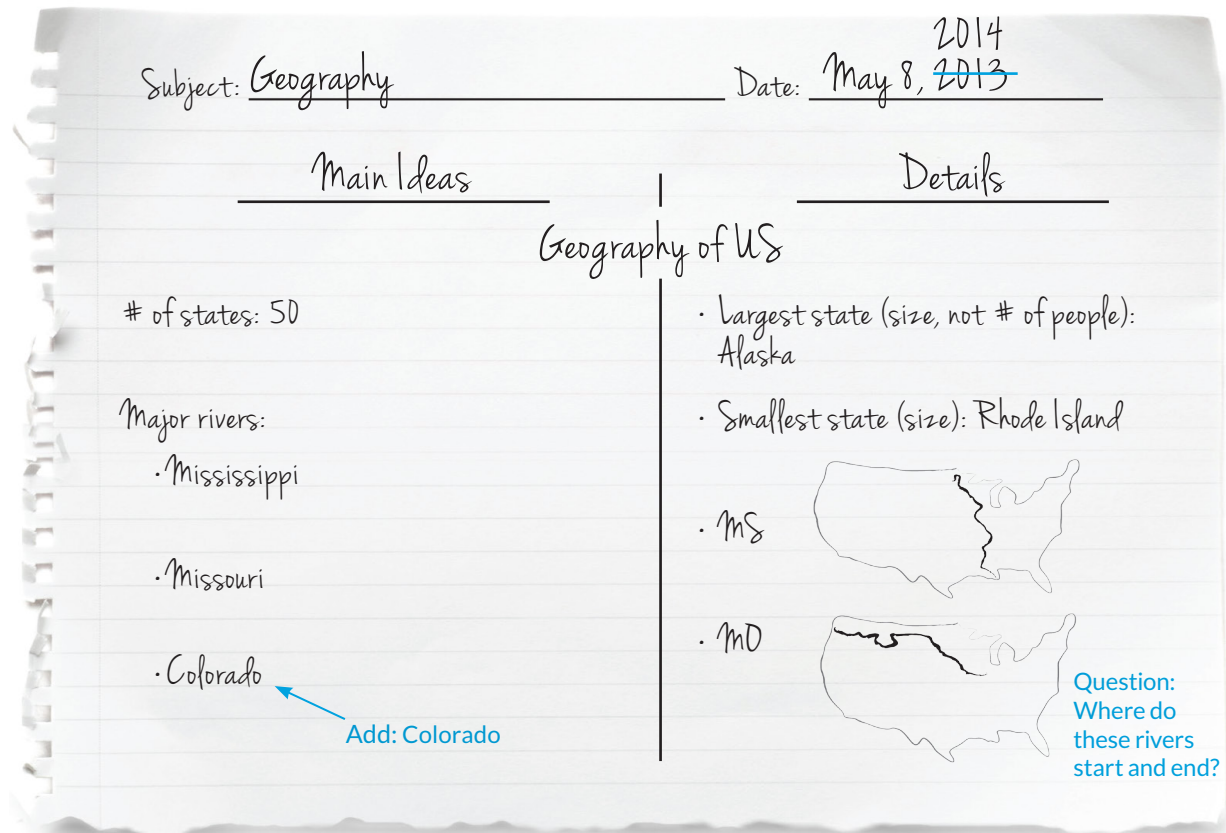 2014
Subject: Geography
Date: May 8, 2013
Main Ideas
Details
Geography of US
# of states: 50
Major rivers:
· Mississippi
· Missouri
· Colorado
Add: Colorado
· Largest state (size, not # of people):
Alaska
· Smallest state (size): Rhode Island
· MS
· MO
Question:
Where do
these rivers
start and end?